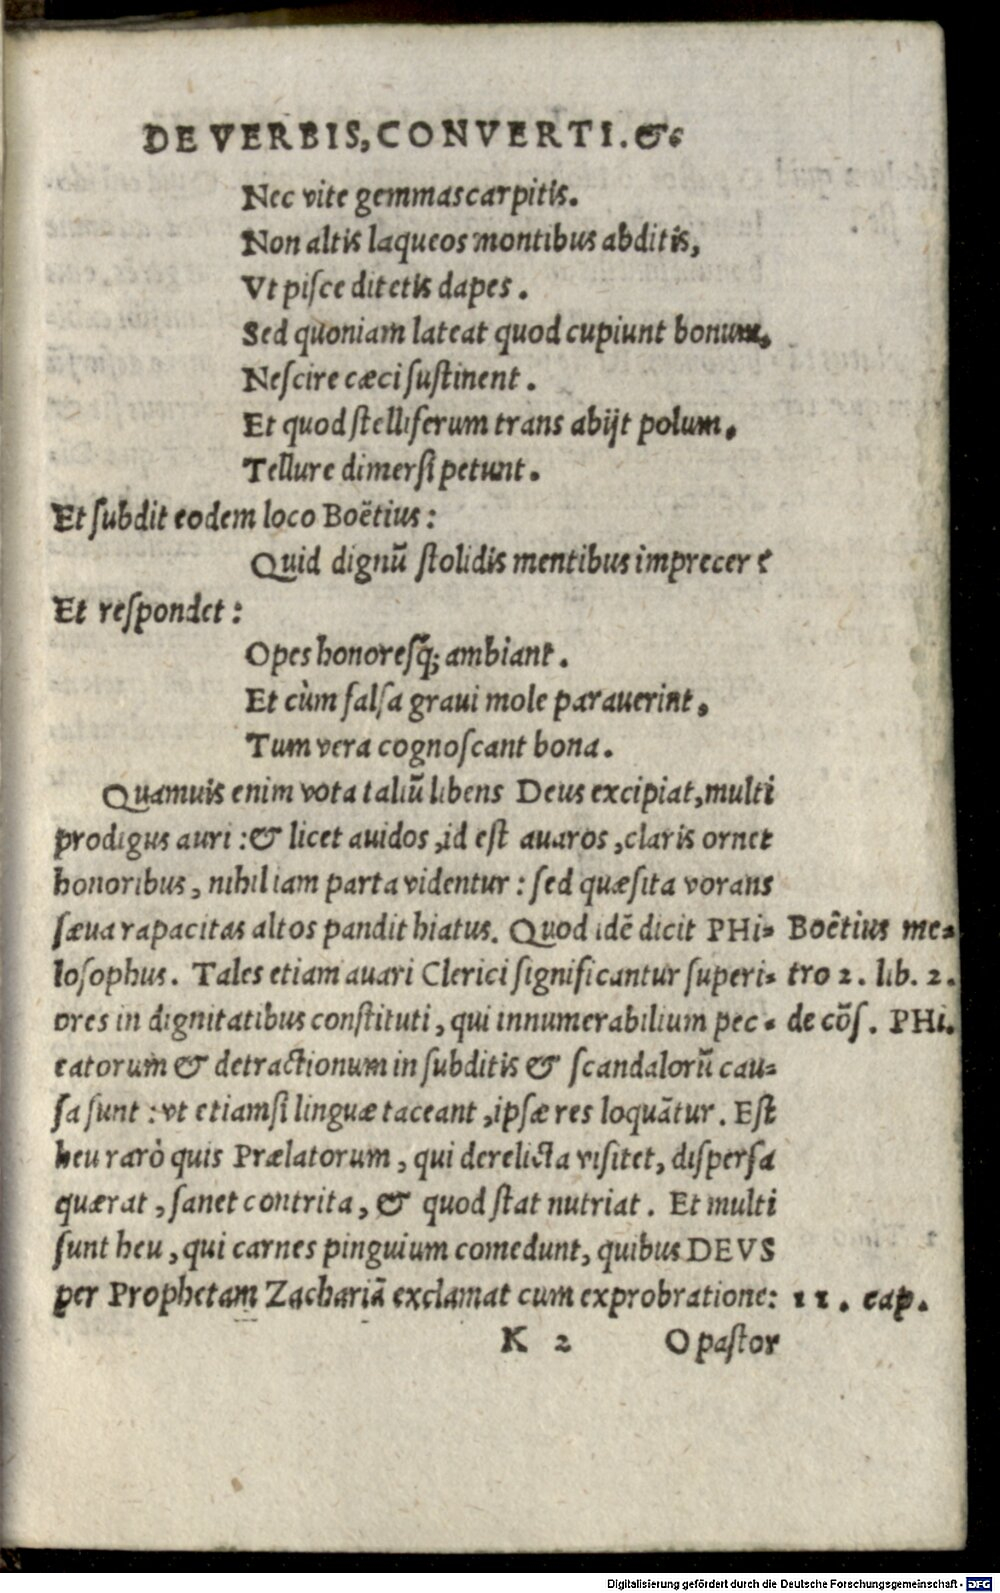 DE VERBIS, CONVERTI. &c
Nec vite gemmas carpitis.
Non altis laqueos montibus abditis,
Vt pisce ditetis dapes.
Sed quoniam lateat quod cupiunt bonum,
Nescire cæci sustinent.
Et quod stelliferum trans abijt polum,
Tellure dimersi petunt.
Et subdit eodem loco Boëtius:
Quid dignū stolidis mentibus imprecer?
Et respondet:
Opes honoresq̃; ambiant.
Et cùm falsa graui mole parauerint,
Tum vera cognoscant bona.
Quamuis enim vota taliū libens Deus excipiat, multi
prodigus auri: & licet auidos, id est auaros, claris ornet
honoribus, nihil iam parta videntur: sed quæsita vorans
sæua rapacitas altos pandit hiatus. Quod idē dicit PHi-
losophus. Tales etiam auari Clerici significantur superi-
ores in dignitatibus constituti, qui innumerabilium pec-
catorum & detractionum in subditis & scandalorū cau-
sa sunt: vt etiamsi linguæ taceant, ipsæ res loquātur. Est
heu rarò quis Prælatorum, qui derelicta visitet, dispersa
quærat, sanet contrita, & quod stat nutriat. Et multi
sunt heu, qui carnes pinguium comedunt, quibus DEVS
per Prophetam Zachariā exclamat cum exprobratione:
K 2 O pastor
Boëtius me-
tro 2. lib. 2.
de cōs. PHi.
11. cap.
Digitalisierung gefördert durch die Deutsche Forschungsgemeinschaft - DFG